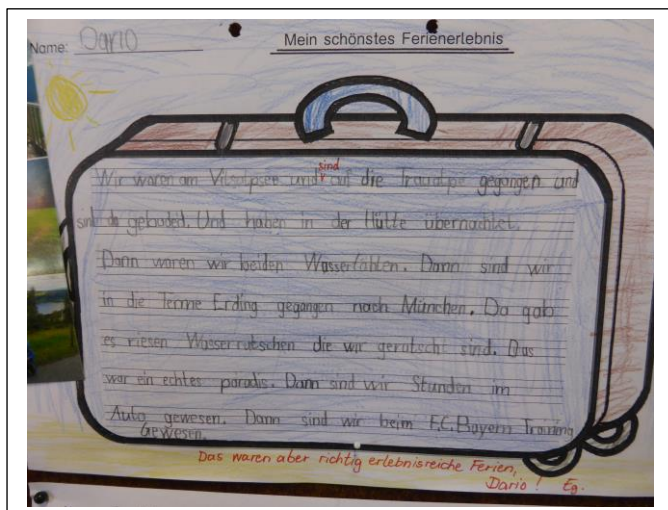 Name: Dario
Mein schönstes Ferienerlebnis
sind
Wir waren am Vilsalpsee und auf die Traualpe gegangen und
sind da gebaded. Und haben in der Hütte übernachtet.
Dann waren wir beiden Wasserfählen. Dann sind wir
in die Terme Erding gegangen nach München. Da gab
es riesen Wasserrutschen die wir gerutscht sind. Das
war ein echtes paradis. Dann sind wir Stunden im
Auto gewesen. Dann sind wir beim F.C. Bayern Training
Gewesen.
Das waren aber richtig erlebnisreiche Ferien,
Dario! Eg.